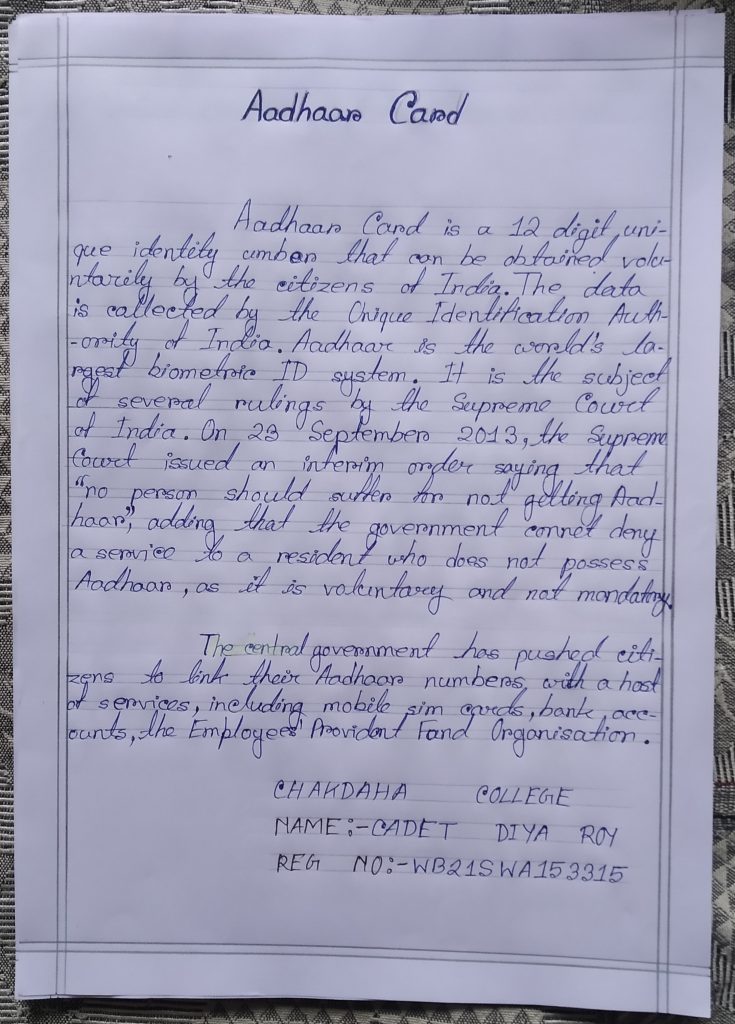 Aadhaar Card
Aadhaar Card is a 12 digit uni-
que identity umber that can be obtained volu-
ntarily by the citizens of India. The data
is collected by the Unique Identification Auth-
-ority of India. Aadhaar is the world's la-
rgest biometric ID system. It is the subject
of several rulings by the Supreme Court
of India. On 23 September 2013, the Supreme
Court issued an interim order saying that
"no person should suffer for not getting Aad-
haar", adding that the government connet deny
a service to a resident who does not possess
Aadhaar, as it is voluntary and not mandatory.
The central government has pushed citi-
zens to link their Aadhaar numbers with a host
of services, including mobile sim cards, bank acc-
ounts, the Employees' Provident Fand Organisation.
CHAKDAHA COLLEGE
NAME:-CADET DIYA ROY
REG NO:-WB21SWA153315